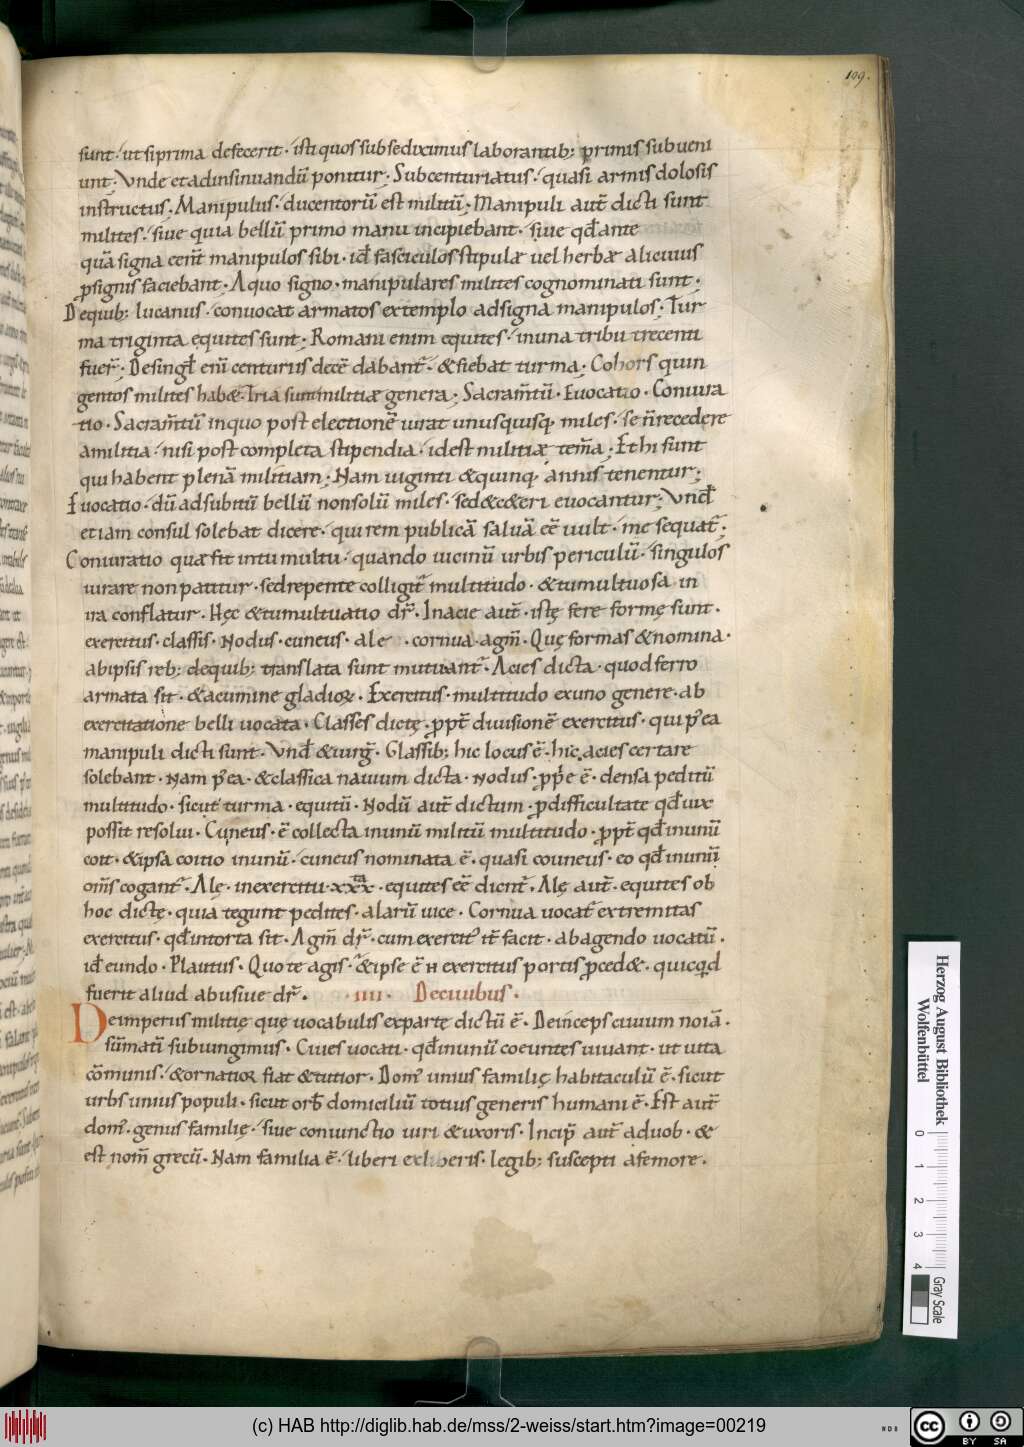 109.
sunt· ut si prima defecerit· isti quos subse diximus laborantib; primis subueni
unt; Vnde et ad insinuandū ponitur; Subcenturiatus· quasi armis dolosis
instructus; Manipulus· ducentorū est militū; Manipuli aut̄ dicti sunt
milites· siue quia bellū primo manu incipiebant· siue qđ ante
quā signa cent̄ manipulos sibi· id̄ fasciculos stipulæ uel herbæ alicuius
ꝓ signis faciebant; A quo signo· manipulares milites cognominati sunt;
De quib; lucanus· conuocat armatos extemplo ad signa manipulos; Tur
ma triginta equites sunt; Romani enim equites· in una tribu trecenti
fuer̄; De singł enī centuriis decē dabant̄· & fiebat turma; Cohors quin
gentos milites hab&· Tria sunt militiæ genera; Sacram̄tū· Euocatio· Coniura
tio· Sacram̄tū in quo post electionē iurat unusquisq; miles· se n̄ recedere
a militia· nisi post completa stipendia· id est militiæ tem̄a; Et hi sunt
qui habent plenā militiam; Nam uiginti & quinq; annis tenentur;
Euocatio· dū ad subitū bellū non solū miles· sed & c&eri euocantur; Vnđ
etiam consul solebat dicere· qui rem publicā saluā eē uult· me sequat̄;
Coniuratio quæ fit in tumultu· quando uicinū urbis periculū· singulos
iurare non patitur· sed repente colligit̄ multitudo· & tumultuosa in
ira conflatur· Hęc & tumultuatio dr̄· In acie aut̄· istę fere formę sunt·
exercitus· classis· Nodus· cuneus· ale · cornua· agm̄· Quę formas & nomina·
ab ipsis reb; de quib; translata sunt mutuant̄· Acies dicta· quod ferro
armata sit· & acumine gladioꝝ· Exercitus· multitudo ex uno genere· ab
exercitatione belli uocata· Classes dictę· ꝓpt̄ diuisionē exercitus· qui p̄ ea
manipuli dicti sunt· Vnđ & uirḡ· Classib; hic locus ē· hic acies certare
solebant· Nam p̄ea· & classica nauium dicta· Nodus· ꝓp̄e ē· densa peditū
multitudo· sicut turma· equitū· Nodū aut̄ dictum· ꝓ difficultate qđ uix
possit resolui· Cuneus· ē collecta in unū militū multitudo· ꝓpt̄ qđ in unū
coit· & ipsa coitio in unū· cuneus nominata ē· quasi couneus· eo qđ in unū
om̄s cogant̄· Alę· in exercitu· xxx ta· equites eē dicnt̄· Alę aut̄· equites ob
hoc dictę· quia tegunt pedites· alarū uice· Cornua uocat̄ extremitas
exercitus· qđ intorta sit· Agm̄ dr̄· cum exercit̄ it̄ facit· ab agendo uocatū·
id̄ eundo· Plautus· Quo te agis· & ipse ē H exercitus portis ꝓced&· quicqđ
fuerit aliud abusiue dr̄· ·iiii· De ciuibus·
De imperiis militię quę uocabulis ex parte dictū ē· Deinceps ciuium noīa·
sūmatī subiungimus· Ciues uocati· qđ in unū coeuntes uiuant· ut uita
cōmunis· & ornatior fiat & tutior· Dom̄ unius familię habitaculū ē· sicut
urbs unius populi· sicut orb̄ domiciliū totius generis humani ē· Est aut̄
dom̄· genus familię· siue coniunctio uiri & uxoris· Incip̄ aut̄ a duob· &
est nom̄ grecū· Nam familia ē· liberi ex liberis· legib; suscepti a femore·
Herzog August Bibliothek
Wolfenbüttel
0 1 2 3 4
Gray Scale
(c) HAB http://diglib.hab.de/mss/2-weiss/start.htm?image=00219
cc BY SA